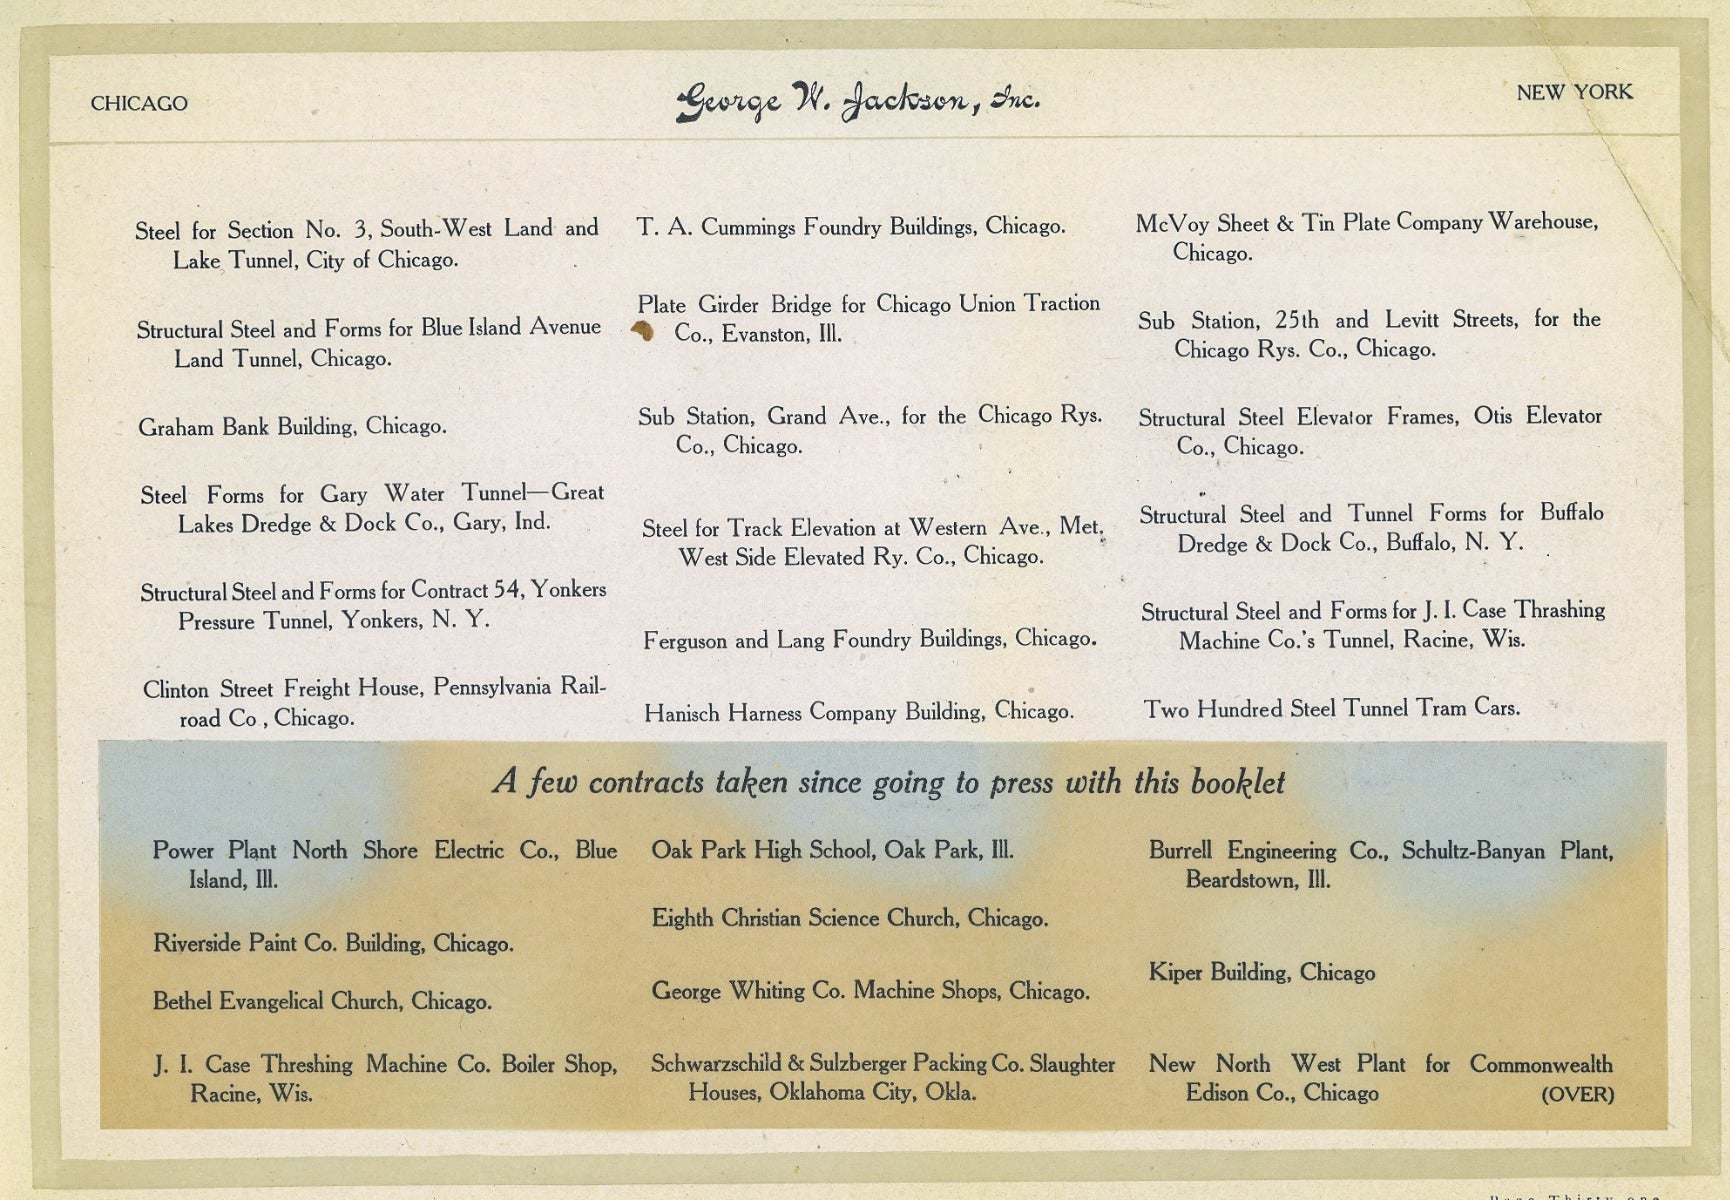 CHICAGO
George W. Jackson, Inc.
NEW YORK
Steel for Section No. 3, South-West Land and
Lake Tunnel, City of Chicago.
Structural Steel and Forms for Blue Island Avenue
Land Tunnel, Chicago.
Graham Bank Building, Chicago.
Steel Forms for Gary Water Tunnel—Great
Lakes Dredge & Dock Co., Gary, Ind.
Structural Steel and Forms for Contract 54, Yonkers
Pressure Tunnel, Yonkers, N. Y.
Clinton Street Freight House, Pennsylvania Rail-
road Co , Chicago.
T. A. Cummings Foundry Buildings, Chicago.
Plate Girder Bridge for Chicago Union Traction
Co., Evanston, Ill.
Sub Station, Grand Ave., for the Chicago Rys.
Co., Chicago.
Steel for Track Elevation at Western Ave., Met.
West Side Elevated Ry. Co., Chicago.
Ferguson and Lang Foundry Buildings, Chicago.
Hanisch Harness Company Building, Chicago.
McVoy Sheet & Tin Plate Company Warehouse,
Chicago.
Sub Station, 25th and Levitt Streets, for the
Chicago Rys. Co., Chicago.
Structural Steel Elevator Frames, Otis Elevator
Co., Chicago.
Structural Steel and Tunnel Forms for Buffalo
Dredge & Dock Co., Buffalo, N. Y.
Structural Steel and Forms for J. I. Case Thrashing
Machine Co.'s Tunnel, Racine, Wis.
Two Hundred Steel Tunnel Tram Cars.
A few contracts taken since going to press with this booklet
Power Plant North Shore Electric Co., Blue
Island, Ill.
Riverside Paint Co. Building, Chicago.
Bethel Evangelical Church, Chicago.
J. I. Case Threshing Machine Co. Boiler Shop,
Racine, Wis.
Oak Park High School, Oak Park, Ill.
Eighth Christian Science Church, Chicago.
George Whiting Co. Machine Shops, Chicago.
Schwarzschild & Sulzberger Packing Co. Slaughter
Houses, Oklahoma City, Okla.
Burrell Engineering Co., Schultz-Banyan Plant,
Beardstown, Ill.
Kiper Building, Chicago
New North West Plant for Commonwealth
Edison Co., Chicago (OVER)
Page Thirty-one